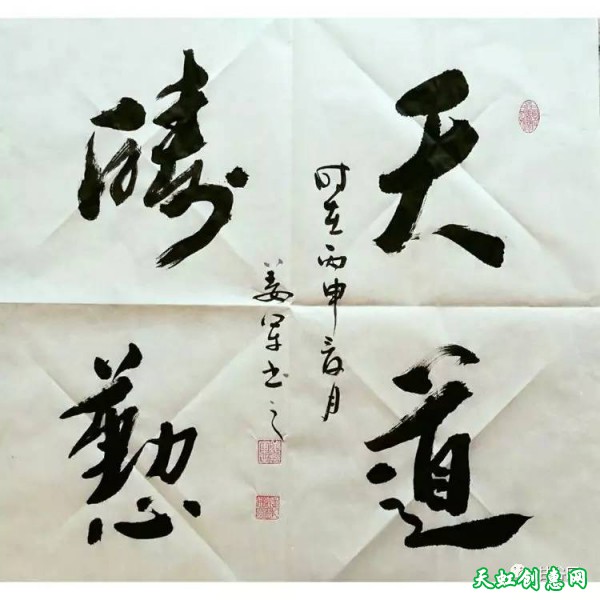 天道
醻懃
时在丙申夏月
姜军书之
天虹创意网